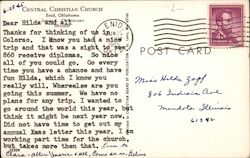 6-25-65
CENTRAL CHRISTIAN CHURCH
Enid, Oklahoma
Dear Hilda and All
Thanks for thinking of us in
Colorao, I know you had a nice
trip and that was a sight to see
860 receive diplomas. So glad
all of you could go. Go every
time you have a chance and have
fun Hilda, which I know you
really will. Whereelse are you
going this summer. We have no
plans for any trip, I wanted to
go around the world this year, but
think it might be next year now.
Did not have time to get out my
annual Xmas letter this year. I am
working part time for the church,
but takes more then that,
ENID
POST CARD
Miss Hilda Zapf
806 Indiana Ave
Mendota Illinois
61342